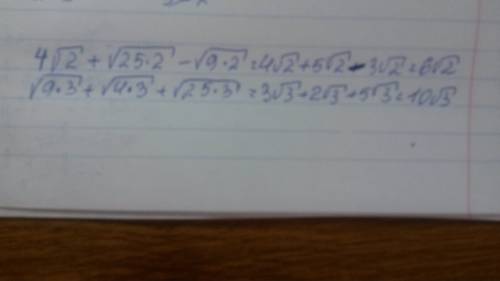 4√2 + √25·2 - √9·2 = 4√2 + 5√2 - 3√2 = 6√2
√9·3 + √4·3 + √25·3 = 3√3 + 2√3 + 5√3 = 10√3